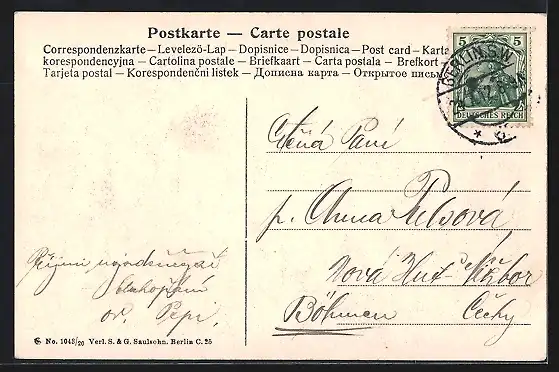 Postkarte — Carte postale
Correspondenzkarte – Levelezö-Lap – Dopisnice – Dopisnica – Post card – Karta
korespondencyjna – Cartolina postale – Briefkaart – Carta postala – Brefkort –
Tarjeta postal – Korespondenční listek – Дописна карта – Открытое письмо
5 5
BERLIN S.W.
DEUTSCHES REICH
Ctěná Paní
p. Anna Pelsová
Nová Huť Nižbor
Böhmen Čechy
Přijmi
blahopřání
od Pepi.
No. 1043/20 Verl. S. & G. Saulsohn. Berlin C. 25